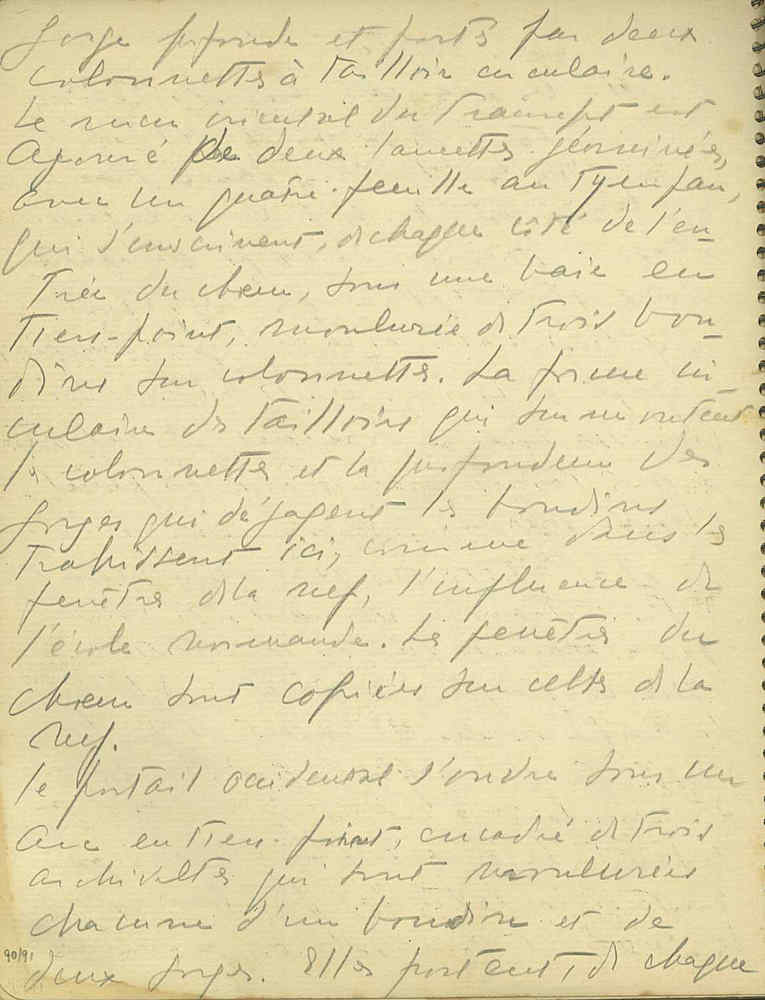 gorge profonde et portés par deux
colonnettes à tailloir circulaire.
Le mur oriental du transept est
ajouré de deux lancettes géminées,
avec un quatre-feuille au tympan,
qui s'inscrivent, de chaque côté de l'en-
trée du chœur, sous une baie en
tiers-point, moulurée de trois bou-
dins sur colonnettes. La forme cir-
culaire des tailloirs qui surmontent
les colonnettes et la profondeur des
gorges qui dégagent les boudins
trahissent ici, comme dans les
fenêtres de la nef, l'influence de
l'école normande. Les fenêtres du
chœur sont copiées sur celles de la
nef.
Le portail occidental s'ouvre sous un
arc en tiers-point, encadré de trois
archivoltes qui sont moulurées
chacune d'un boudin et de
deux gorges. Elles portent, de chaque
90/91